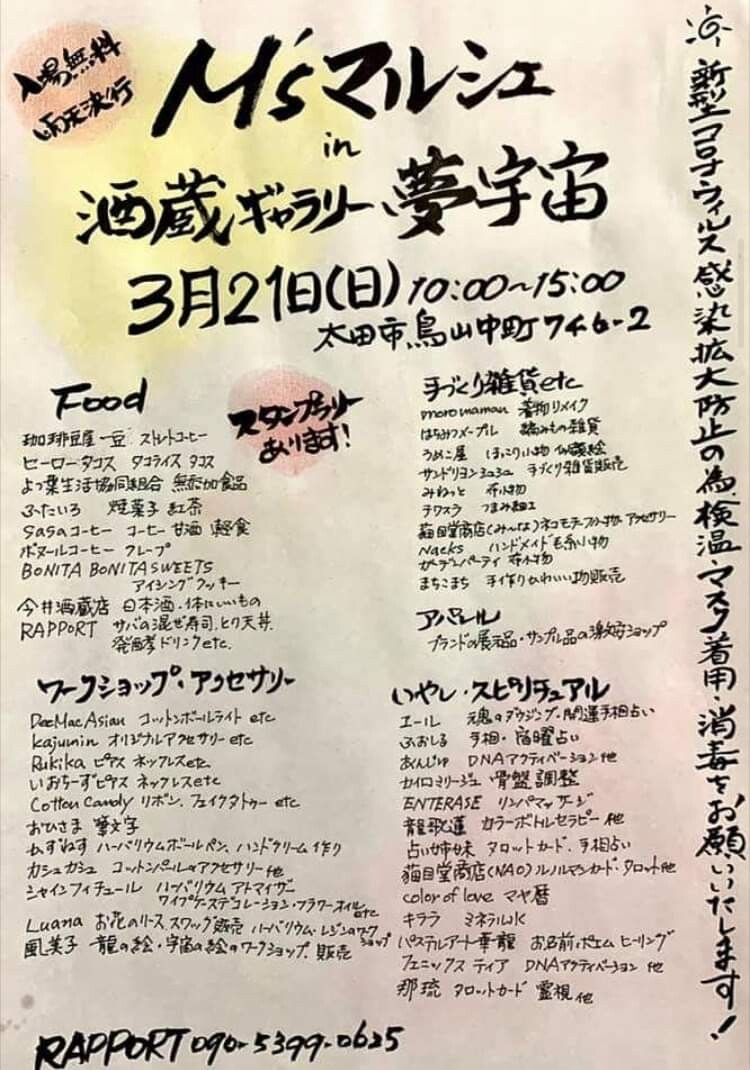 入場無料
雨天決行
M'sマルシェ
in
酒蔵ギャラリー夢宇宙
3月21日(日)10:00~15:00
太田市鳥山中町746-2
Food
珈琲豆屋一豆 ストレートコーヒー
ヒーロータコス タコライス タコス
よつ葉生活協同組合 無添加食品
ふたいろ 焼菓子 紅茶
Sasaコーヒー コーヒー 甘酒 軽食
ボヌールコーヒー クレープ
BONITA BONITA SWEETS
アイシングクッキー
今井酒蔵店 日本酒・体にいいもの
RAPPORT サバの混ぜ寿司、とり天丼、
発酵ドリンクetc.
スタンプラリー
あります!
手づくり雑貨etc
moromaman 着物リメイク
はちみつメープル 編みもの雑貨
うめこ屋 ほっこり小物 似顔絵
サンドリヨンシュシュ 手づくり雑貨販売
みねっと 布小物
テワスラ つまみ細工
猫目堂商店(み~な)ネコモチーフ小物・アクセサリー
Naeks ハンドメイド毛糸小物
ガーデンパーティ 布小物
まちこまち 手作りかわいい物販売
アパレル
ブランドの展示品・サンプル品の激安ショップ
ワークショップ・アクセサリー
DeeMacAsian コットンボールライト etc
kajunin オリジナルアクセサリー etc
Rukika ピアス ネックレスetc
いおらーずピアス ネックレスetc
Cotton Candy リボン、フェイクタトゥー etc
おひさま 筆文字
ねずねず ハーバリウムボールペン、ハンドクリーム作り
カシュカシュ コットンパールのアクセサリー他
シャインフィチュール ハーバリウム アトマイザー
ワイプケースデコレーション・フラワーオイルetc
Luana お花のリース、スワッグ販売 ハーバリウム・レジンのワークショップ
風美子 龍の絵・宇宙の絵のワークショップ、販売
いやし・スピリチュアル
エール 魂のダウジング・開運手相占い
ふおしる 手相・宿曜占い
あんじゅ DNAアクティベーション他
カイロミリージュ 骨盤調整
ENTERASE リンパマッサージ
龍歌蓮 カラーボトルセラピー他
占い姉妹 タロットカード、手相占い
猫目堂商店(NAO)ルノルマンカード・タロット他
color of love マヤ暦
キララ ミネラルJK
パステルアート華龍 お名前ポエム ヒーリング
フェニックス ティア DNAアクティベーション 他
那琉 タロットカード 霊視他
新型コロナウィルス感染拡大防止の為、検温・マスク着用・消毒をお願いいたします!
RAPPORT 090-5399-0625